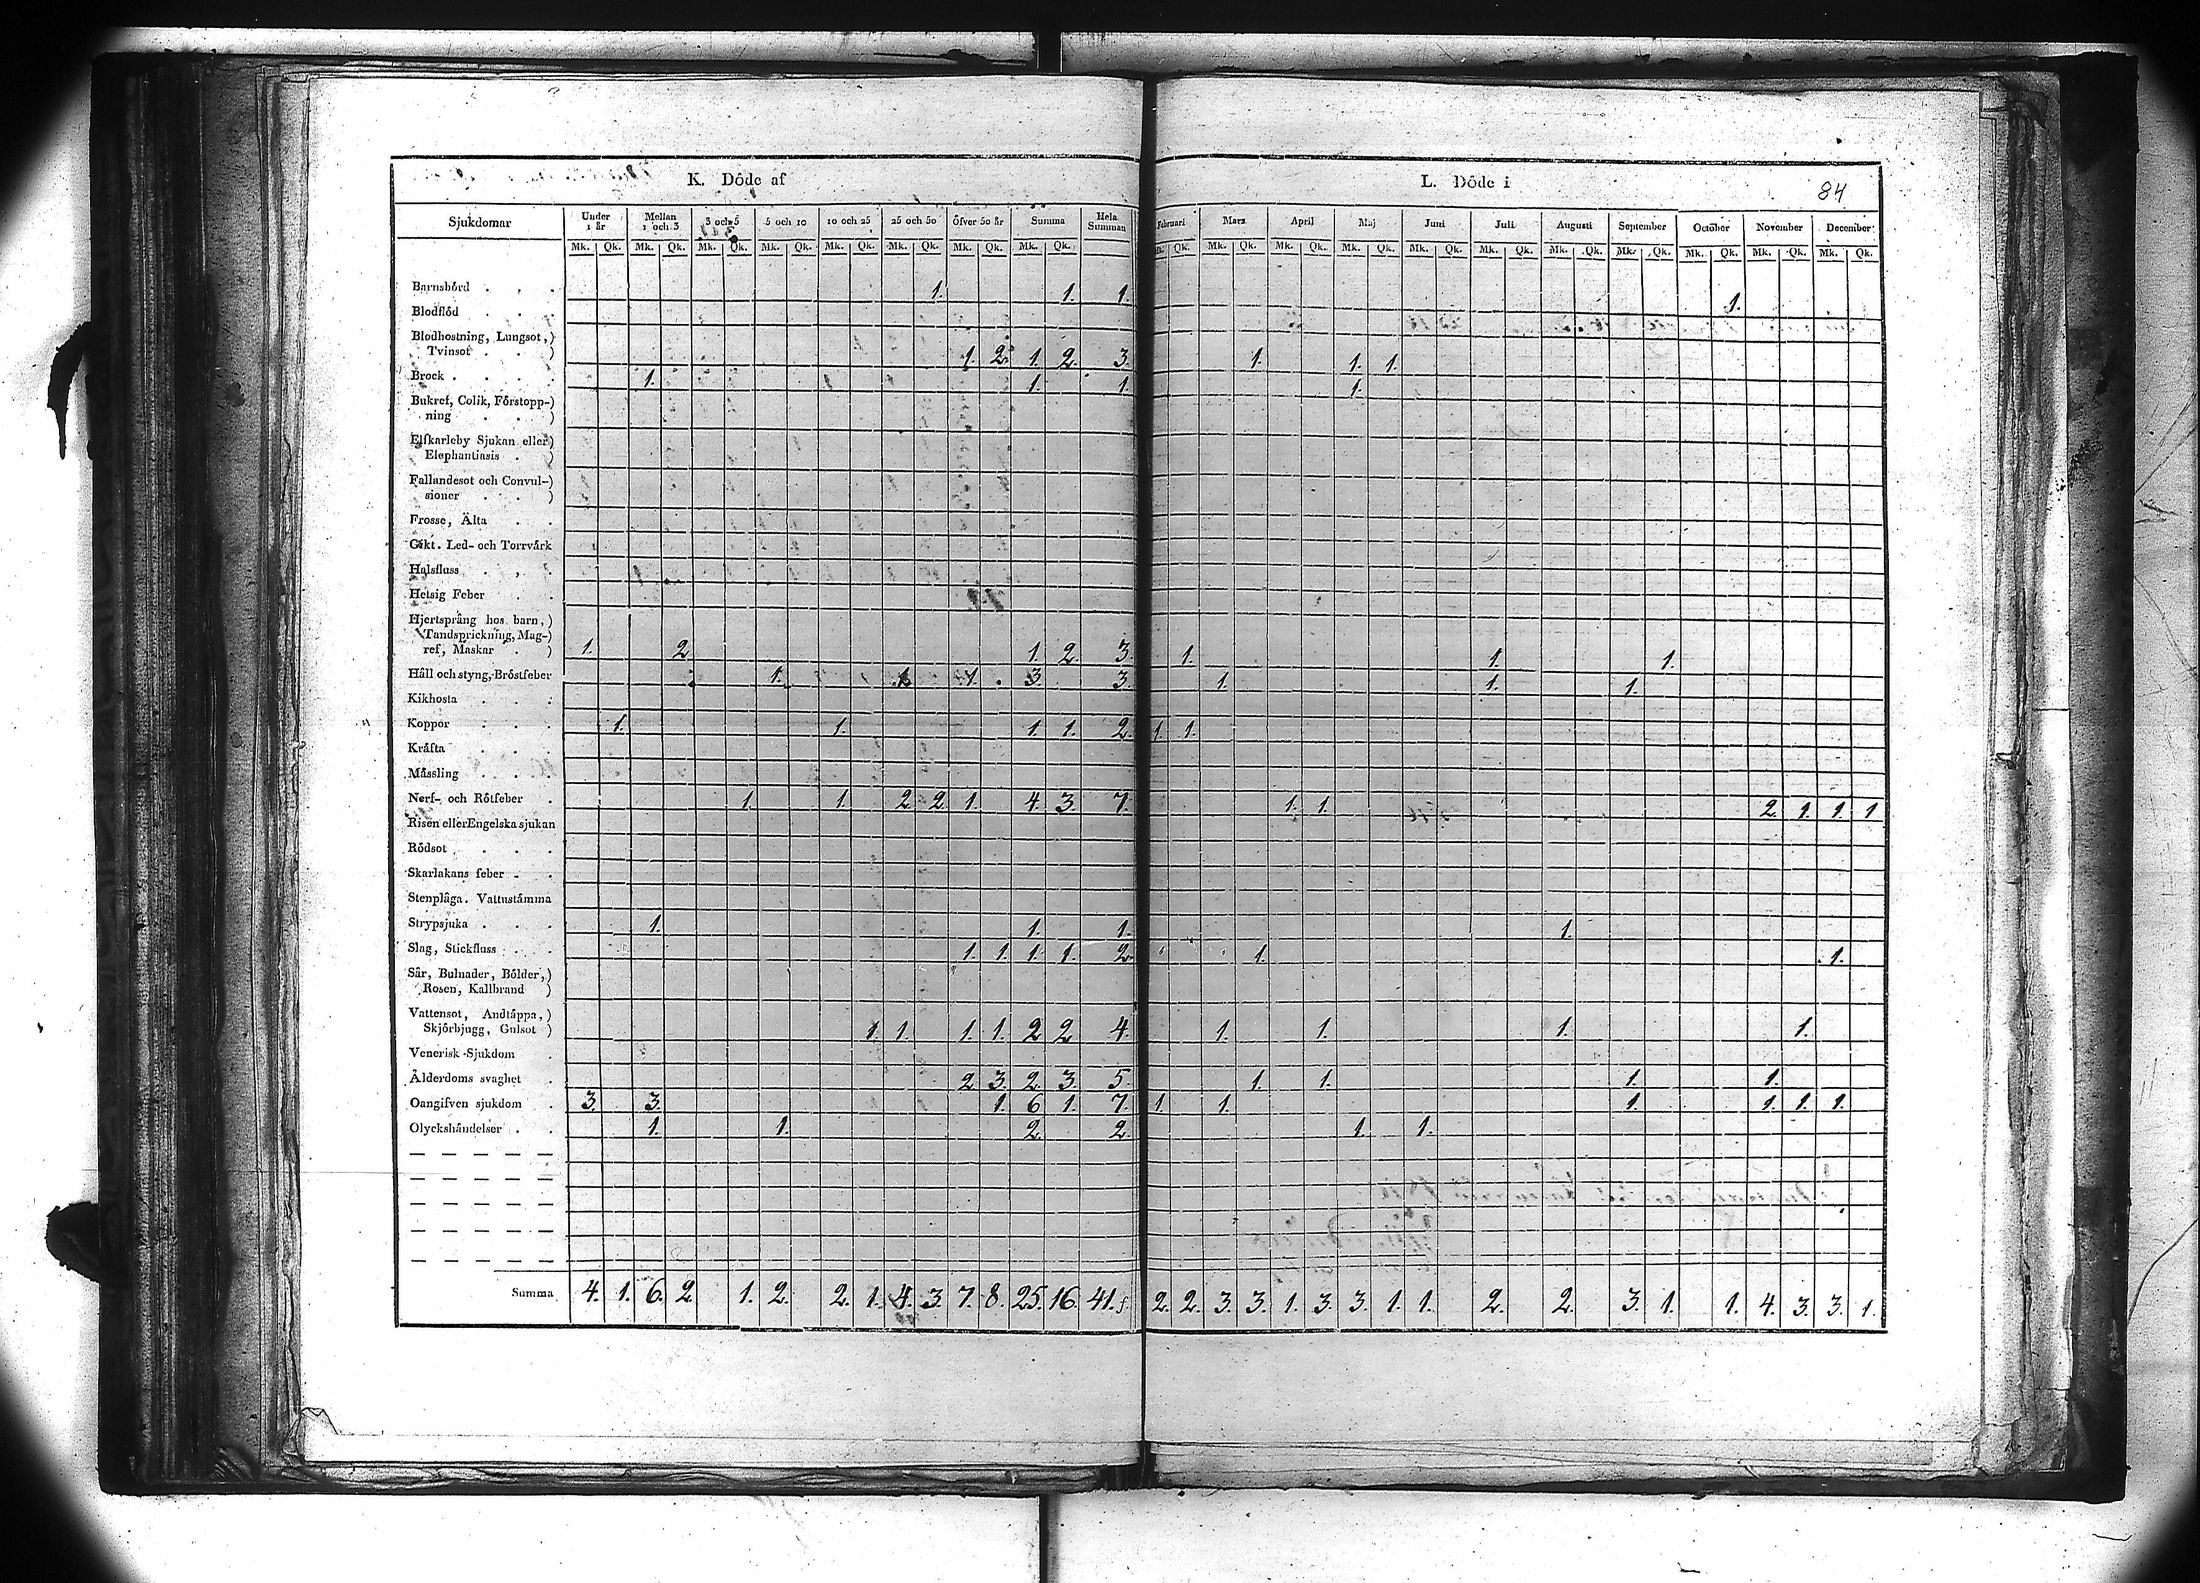 K. Döde af L. Döde i 84
Sjukdomar Under 1 år Mellan 1 och 3 3 och 5 5 och 10 10 och 25 25 och 50 Öfver 50 år Summa Hela Summan Februari Mars April Maj Juni Juli Augusti September October November December
Mk. Qk. Mk. Qk. Mk. Qk. Mk. Qk. Mk. Qk. Mk. Qk. Mk. Qk. Mk. Qk. Mk. Qk. Mk. Qk. Mk. Qk. Mk. Qk. Mk. Qk. Mk. Qk. Mk. Qk. Mk. Qk. Mk. Qk. Mk. Qk. Mk. Qk.
Barnsbörd . . . 1. 1. 1. 1.
Blodflöd . . .
Blodhostning, Lungsot,)
Tvinsot . . ) 1. 2. 1. 2. 3. 1. 1. 1.
Brock . . . . 1. 1. 1. 1.
Bukref, Colik, Förstopp-)
ning . . . )
Elfkarleby Sjukan eller)
Elephantiasis . )
Fallandesot och Convul-)
sioner . . . )
Frosse, Älta . .
Gikt. Led- och Torrvärk
Halsfluss . . .
Hetsig Feber . .
Hjertsprång hos barn,)
Tandsprickning, Mag-)
ref, Maskar . ) 1. 2 1. 2. 3. 1. 1. 1.
Håll och styng, Bröstfeber 1. 1. 1. 3. 3. 1. 1. 1.
Kikhosta . . .
Koppor . . . 1. 1. 1. 1. 2. 1. 1.
Kräfta . . .
Mässling . . .
Nerf- och Rötfeber . 1. 1. 2 2. 1. 4. 3. 7. 1. 1. 2. 1. 1. 1
Risen eller Engelska sjukan
Rödsot . . . .
Skarlakans feber . .
Stenplåga. Vattustämma
Strypsjuka . . . 1. 1. 1. 1.
Slag, Stickfluss . . . 1. 1. 1. 1. 2. 1. 1.
Sår, Bulnader, Bölder,)
Rosen, Kallbrand )
Vattensot, Andtäppa,)
Skjörbjugg, Gulsot ) 1. 1. 1. 1. 2 2. 4. 1. 1. 1. 1.
Venerisk Sjukdom .
Ålderdoms svaghet . 2 3. 2. 3. 5 1. 1. 1. 1.
Oangifven sjukdom . 3. 3. 1. 6 1. 7. 1. 1. 1. 1. 1. 1.
Olyckshändelser . . 1. 1. 2. 2. 1. 1.
Summa 4. 1. 6. 2. 1. 2. 2. 1. 4. 3. 7. 8. 25. 16. 41. 2. 2. 3. 3. 1. 3. 3. 1. 1. 2. 2. 3. 1. 1. 4. 3. 3. 1.